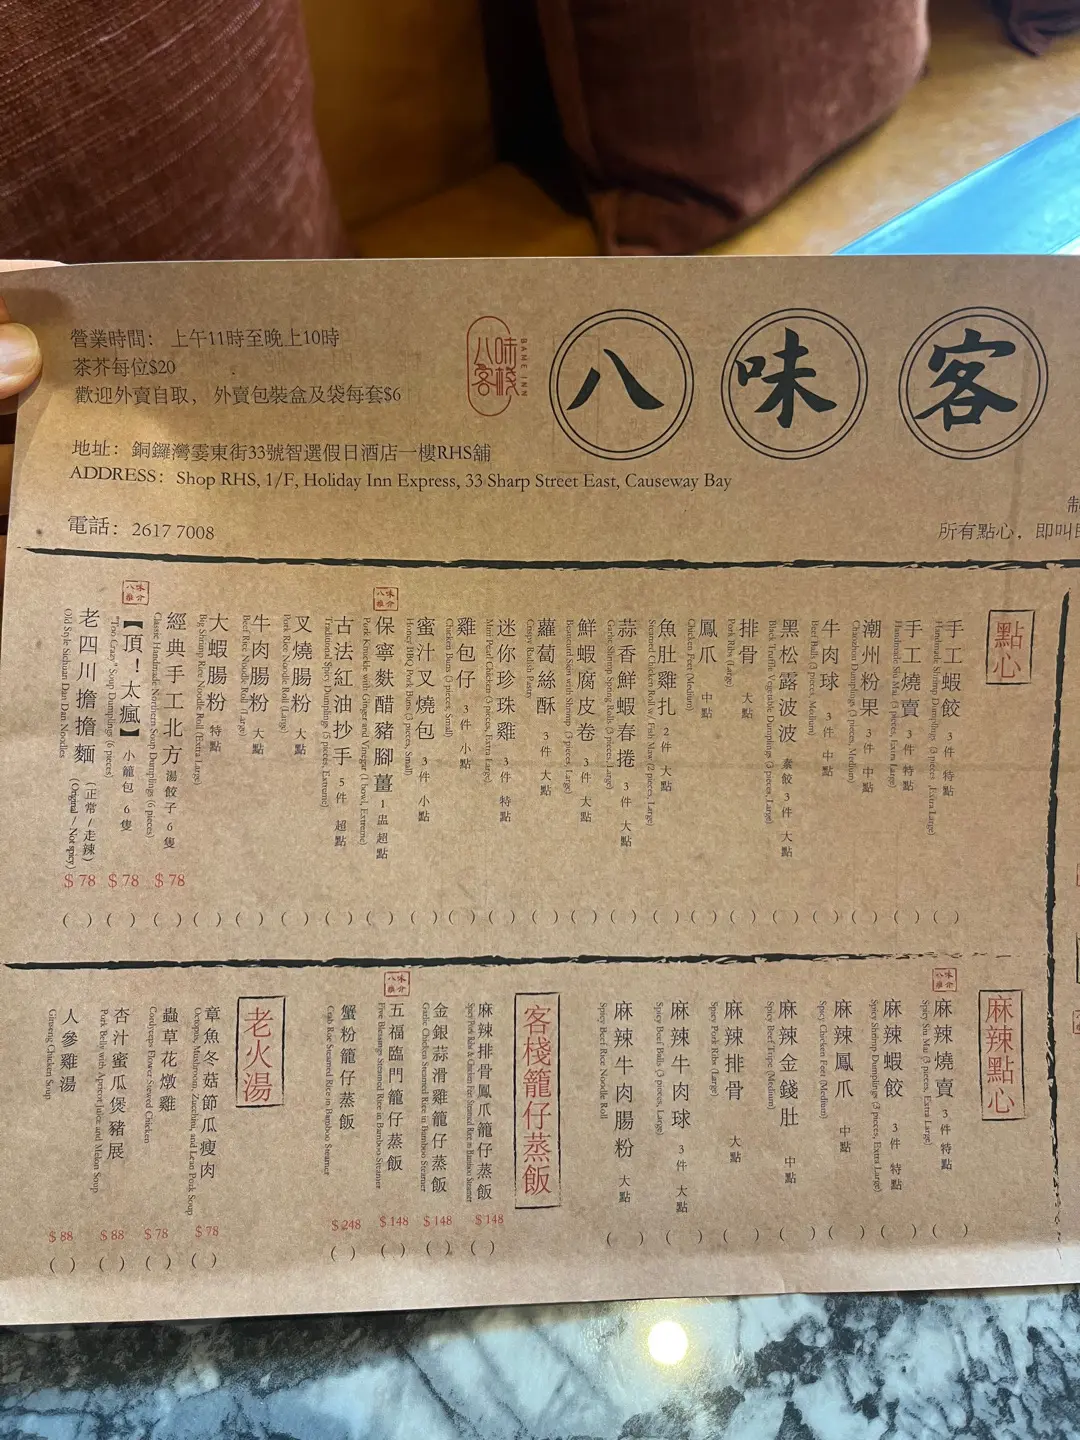 營業時間： 上午11時至晚上10時
茶芥每位$20
歡迎外賣自取， 外賣包裝盒及袋每套$6
地址： 銅鑼灣霎東街33號智選假日酒店一樓RHS舖
ADDRESS： Shop RHS, 1/F, Holiday Inn Express, 33 Sharp Street East, Causeway Bay
電話： 2617 7008
八味客棧
BAME INN
八味客
所有點心，即叫
點心
手工蝦餃 3件 特點 ( )
Handmade Shrimp Dumplings (3 pieces, Extra Large)
手工燒賣 3件 特點 ( )
Handmade Siu Mai (3 pieces, Extra Large)
潮州粉果 3件 中點 ( )
Chaozhou Dumplings (3 pieces, Medium)
牛肉球 3件 中點 ( )
Beef Balls (3 pieces, Medium)
黑松露波波 素餃 3件 大點 ( )
Black Truffle Vegetable Dumplings (3 pieces, Large)
排骨 大點 ( )
Pork Ribs (Large)
鳳爪 中點 ( )
Chicken Feet (Medium)
魚肚雞扎 2件 大點 ( )
Steamed Chicken Roll w/ Fish Maw (2 pieces, Large)
蒜香鮮蝦春捲 3件 大點 ( )
Garlic Shrimp Spring Rolls (3 pieces, Large)
鮮蝦腐皮卷 3件 大點 ( )
Beancurd Skin with Shrimp (3 pieces, Large)
蘿蔔絲酥 3件 大點 ( )
Crispy Radish Pastry
迷你珍珠雞 3件 特點 ( )
Mini Pearl Chicken (3 pieces, Extra Large)
雞包仔 3件 小點 ( )
Chicken Buns (3 pieces, Small)
蜜汁叉燒包 3件 小點 ( )
Honey BBQ Pork Buns (3 pieces, Small)
八味推介
保寧麩醋豬腳薑 1盅 超點 ( )
Pork Knuckle with Ginger and Vinegar (1 bowl, Extreme)
古法紅油抄手 5件 超點 ( )
Traditional Spicy Dumpling (5 pieces, Extreme)
叉燒腸粉 大點 ( )
Pork Rice Noodle Roll (Large)
牛肉腸粉 大點 ( )
Beef Rice Noodle Roll (Large)
大蝦腸粉 特點 ( )
Big Shrimp Rice Noodle Roll (Extra Large)
經典手工北方湯餃子 6隻 $78 ( )
Classic Handmade Northern Soup Dumplings (6 pieces)
八味推介
【頂！太瘋】小籠包 6隻 $78 ( )
"Too Crazy" Soup Dumplings (6 pieces)
老四川擔擔麵 （正常／走辣） $78 ( )
Old Style Sichuan Dan Dan Noodles (Original / Not spicy)
麻辣點心
八味推介
麻辣燒賣 3件 特點 ( )
Spicy Siu Mai (3 pieces, Extra Large)
麻辣蝦餃 3件 特點 ( )
Spicy Shrimp Dumplings (3 pieces, Extra Large)
麻辣鳳爪 中點 ( )
Spicy Chicken Feet (Medium)
麻辣金錢肚 中點 ( )
Spicy Beef Tripe (Medium)
麻辣排骨 大點 ( )
Spicy Pork Ribs (Large)
麻辣牛肉球 3件 大點 ( )
Spicy Beef Balls (3 pieces, Large)
麻辣牛肉腸粉 大點 ( )
Spicy Beef Rice Noodle Roll
客棧籠仔蒸飯
麻辣排骨鳳爪籠仔蒸飯 $148 ( )
Spicy Pork Ribs & Chicken Feet Steamed Rice in Bamboo Steamer
金銀蒜滑雞籠仔蒸飯 $148 ( )
Garlic Chicken Steamed Rice in Bamboo Steamer
八味推介
五福臨門籠仔蒸飯 $148 ( )
Five Blessings Steamed Rice in Bamboo Steamer
蟹粉籠仔蒸飯 $248 ( )
Crab Roe Steamed Rice in Bamboo Steamer
老火湯
章魚冬菇節瓜瘦肉 $78 ( )
Octopus, Mushroom, Zucchini, and Lean Pork Soup
蟲草花燉雞 $78 ( )
Cordyceps Flower Stewed Chicken
杏汁蜜瓜煲豬展 $88 ( )
Pork Belly with Apricot Juice and Melon Soup
人參雞湯 $88 ( )
Ginseng Chicken Soup